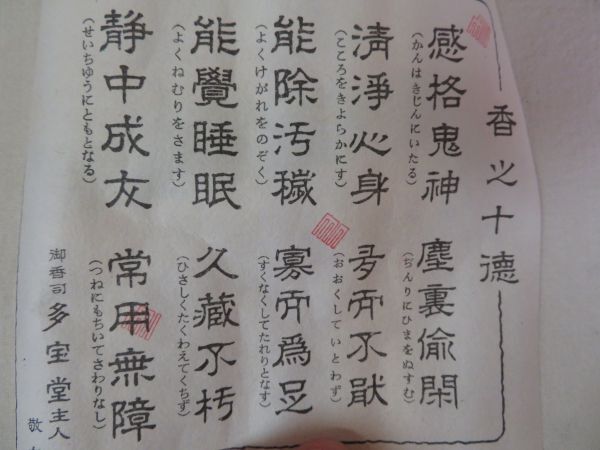 香之十徳
感格鬼神
(かんはきじんにいたる)
清淨心身
(こころをきよらかにす)
能除汚穢
(よくけがれをのぞく)
能覺睡眠
(よくねむりをさます)
静中成友
(せいちゆうにともとなる)
塵裏偸閑
(ぢんりにひまをぬすむ)
多而不厭
(おおくしていとわず)
寡而爲足
(すくなくしてたれりとなす)
久藏不朽
(ひさしくたくわえてくちず)
常用無障
(つねにもちいてさわりなし)
御香司 多宝堂主人
敬